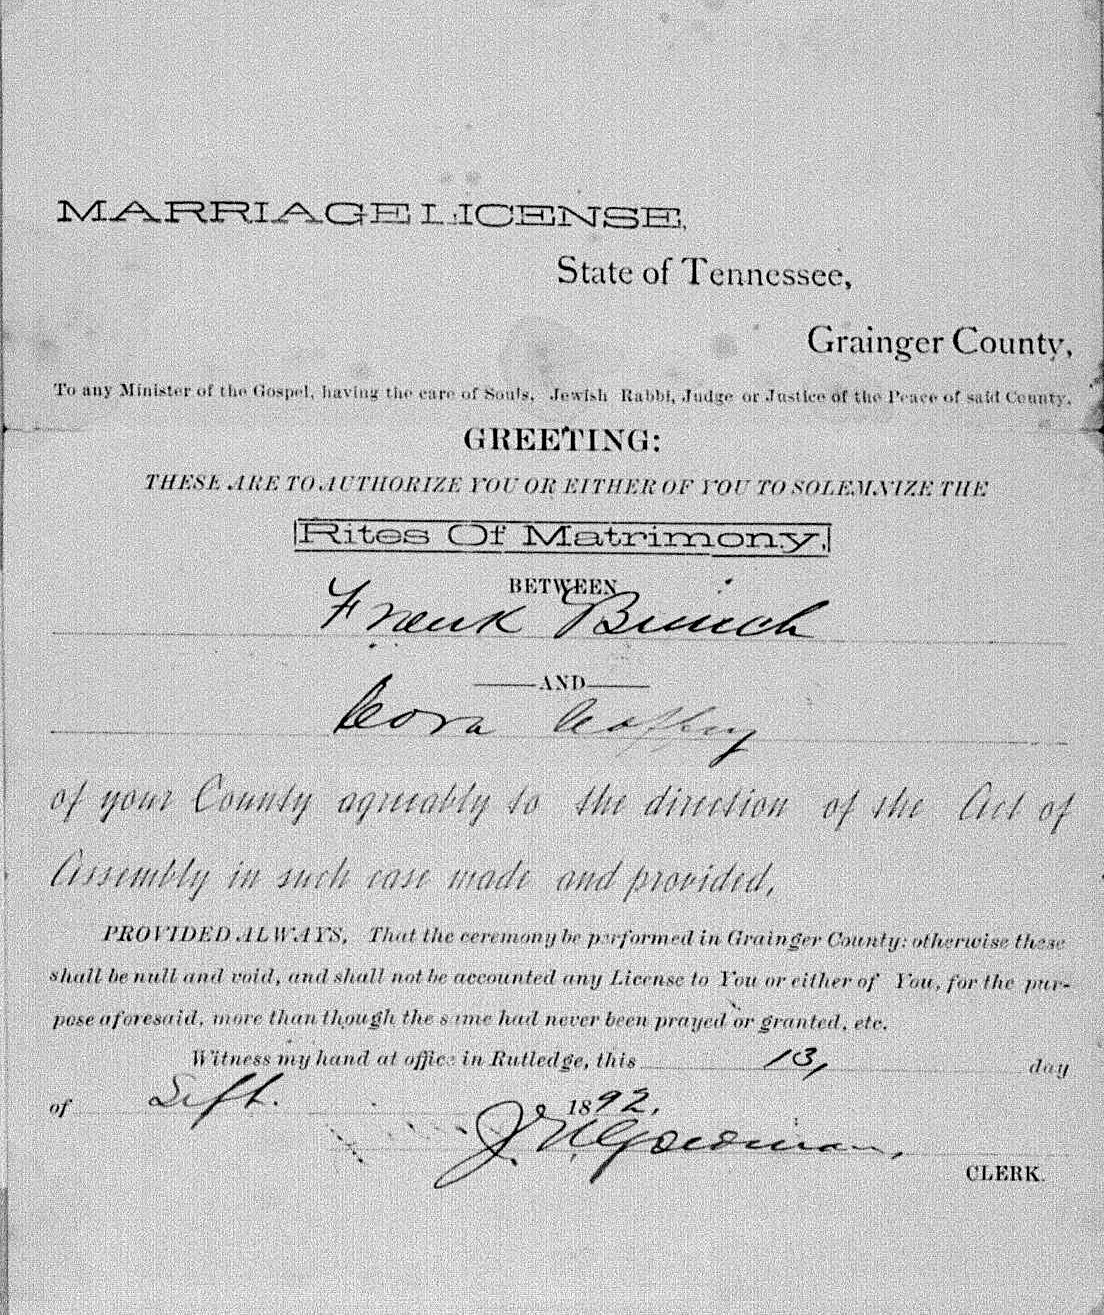 MARRIAGE LICENSE,
State of Tennessee,
Grainger County,
To any Minister of the Gospel, having the care of Souls, Jewish Rabbi, Judge or Justice of the Peace of said County.
GREETING:
THESE ARE TO AUTHORIZE YOU OR EITHER OF YOU TO SOLEMNIZE THE
Rites Of Matrimony,
BETWEEN
Frank Bunch
AND
Cora Coffey
of your County agreeably to the direction of the Act of
Assembly in such case made and provided,
PROVIDED ALWAYS, That the ceremony be performed in Grainger County: otherwise these
shall be null and void, and shall not be accounted any License to You or either of You, for the pur-
pose aforesaid, more than though the same had never been prayed or granted, etc.
Witness my hand at office in Rutledge, this 13, day
of Sept. 1892.
CLERK.